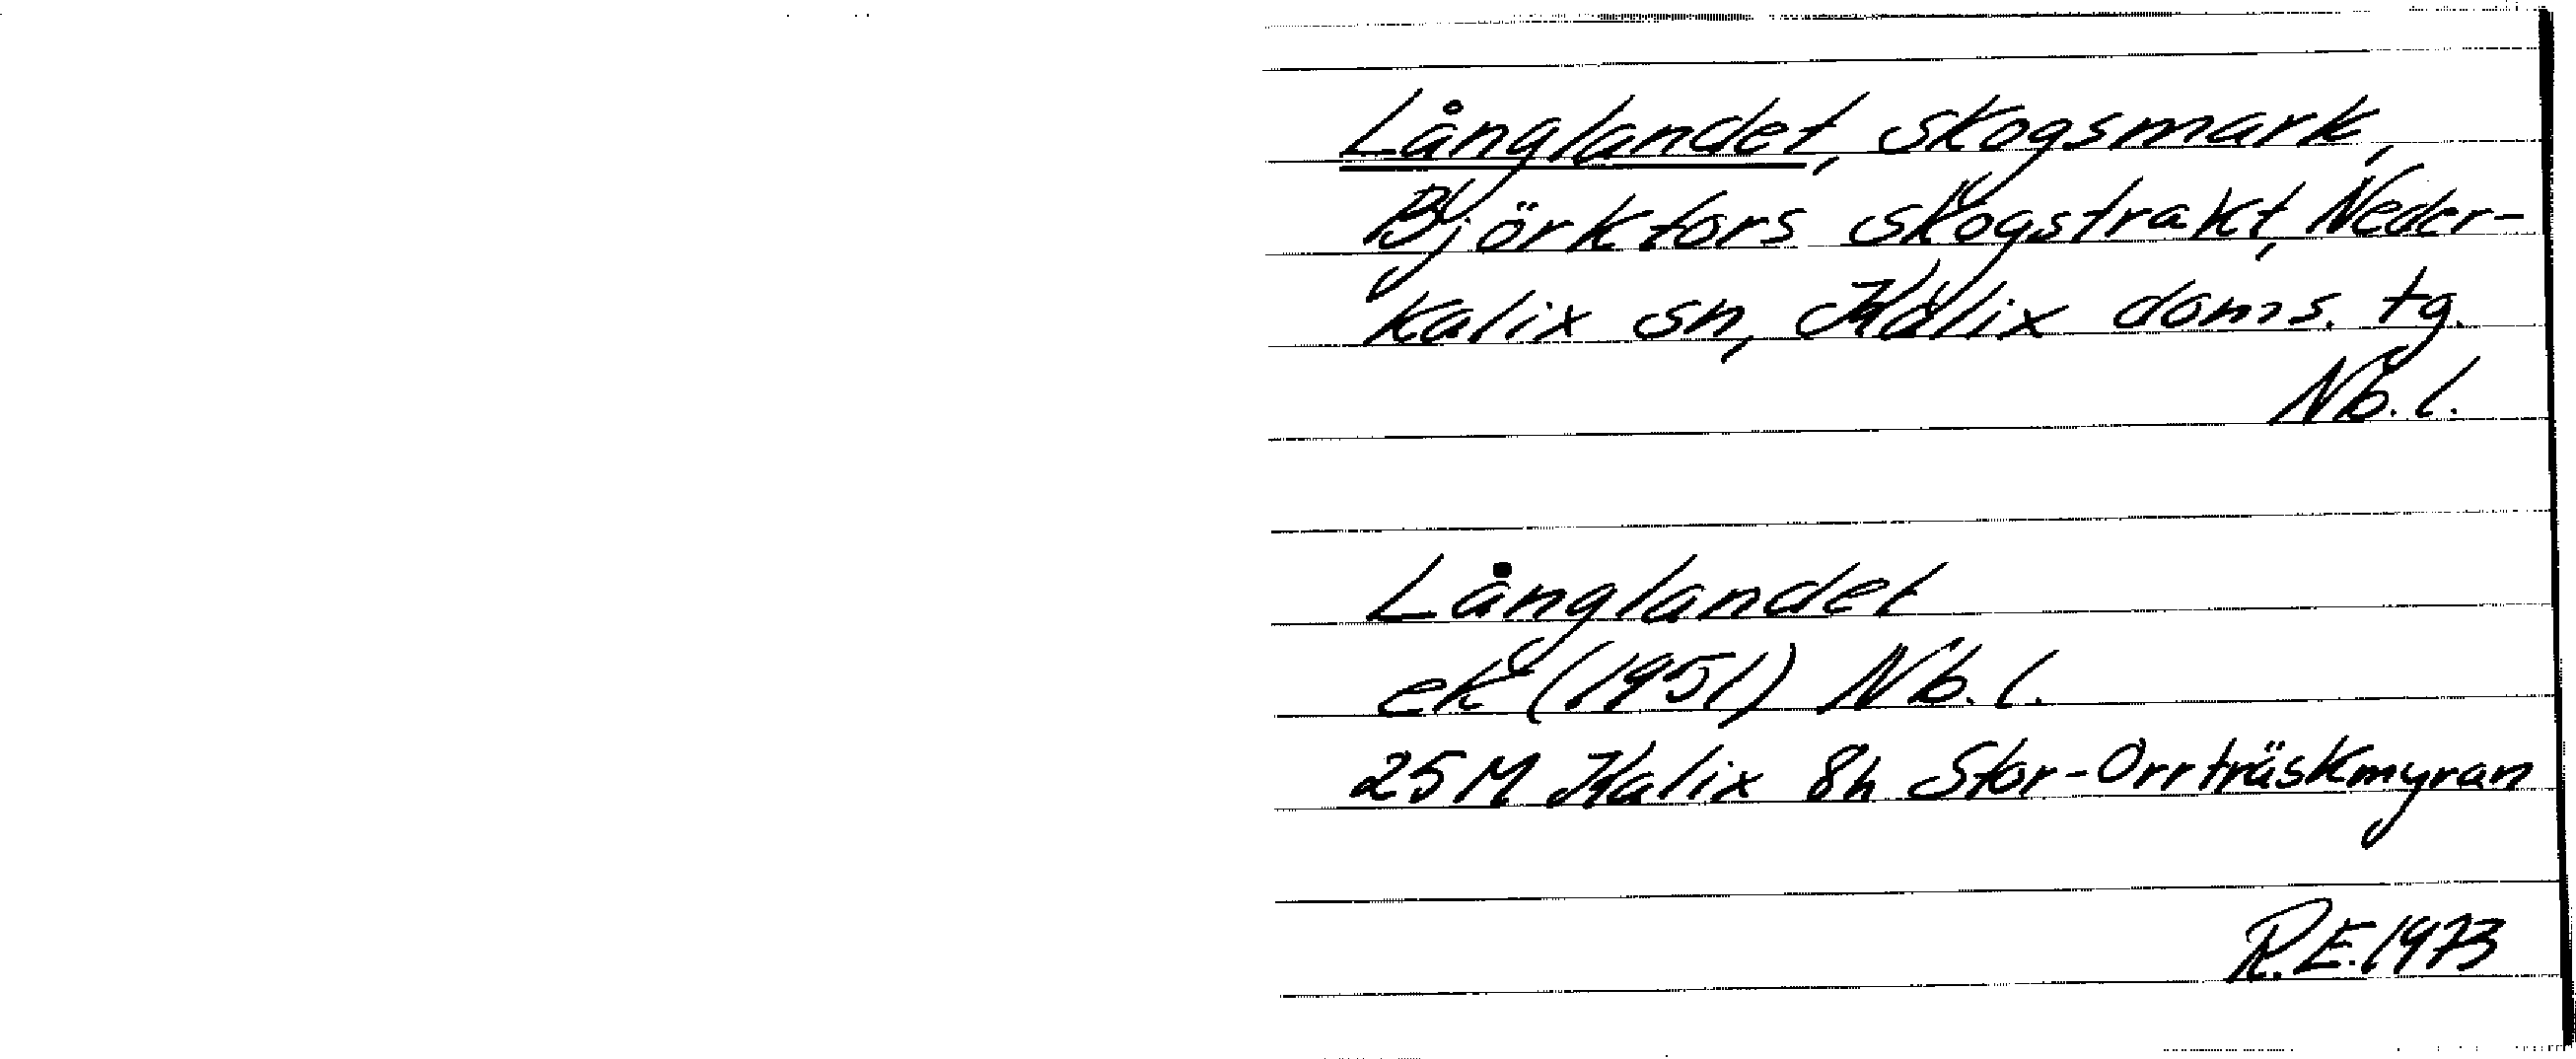 Långlandet, skogsmark,
Björkfors skogstrakt, Neder-
kalix sn, Kalix doms. tg.
Nb. l.
Långlandet
ek (1951) Nb. l.
25 M Kalix 8h Stor-Orrträskmyran
R.E. 1973